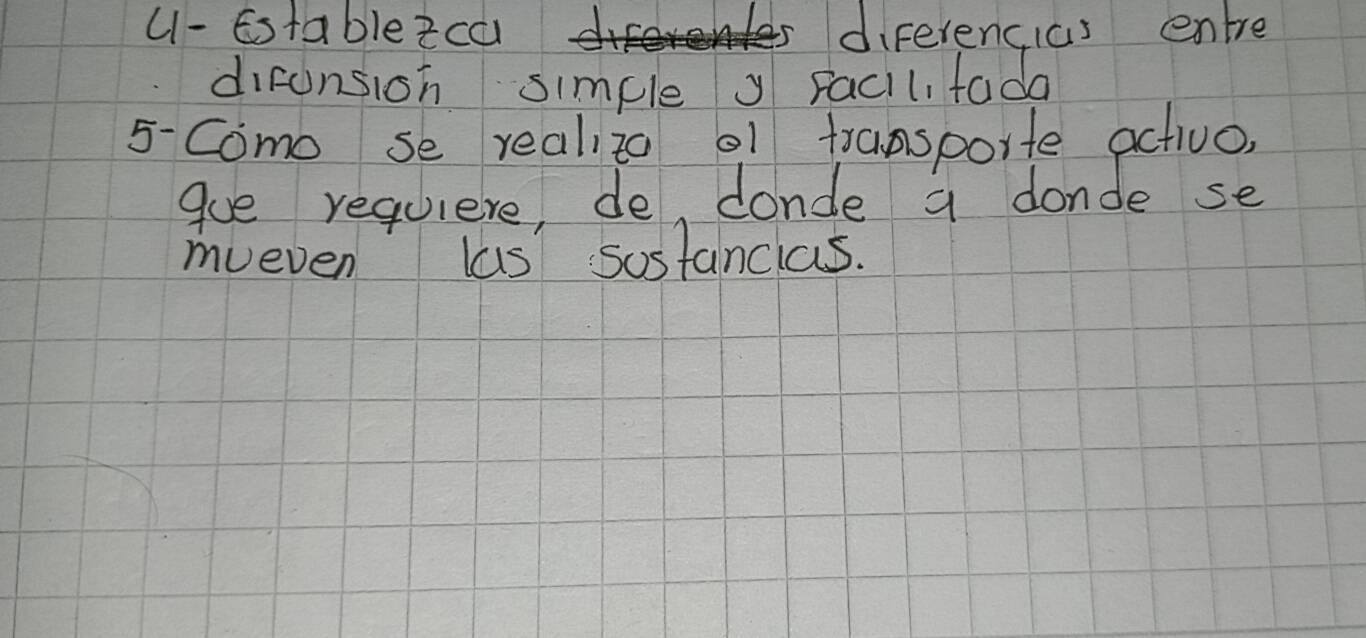 4- Establezca diferentes diferencias entre
difunsión simple y facilitada
5- Cómo se realiza el transporte activo,
que requiere, de donde a donde se
mueven las sustancias.